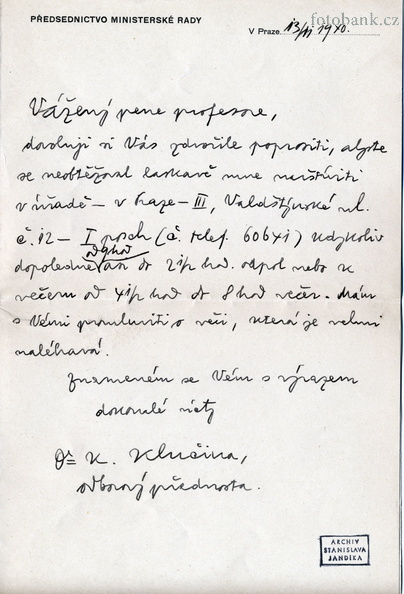 PŘEDSEDNICTVO MINISTERSKÉ RADY
fotobank.cz
V Praze 13/II 1940.
Vážený pane profesore,
dovoluji si Vás zdvořile poprositi, abyste
se neobtěžoval laskavě mne navštíviti
v úřadě – v Praze – III, Valdštýnské ul.
č. 12 – I posch (č. telef. 60641) kdykoliv
od 9 hod
dopoledne až do 2 1/2 hod. odpol nebo k
večeru od 4 1/2 hod do 8 hod večer. Mám
s Vámi promluviti o věci, která je velmi
naléhavá.
Znamenám se Vám s výrazem
dokonalé úcty
Dr K. Klučina,
odborový přednosta.
ARCHIV
STANISLAVA
JANDÍKA